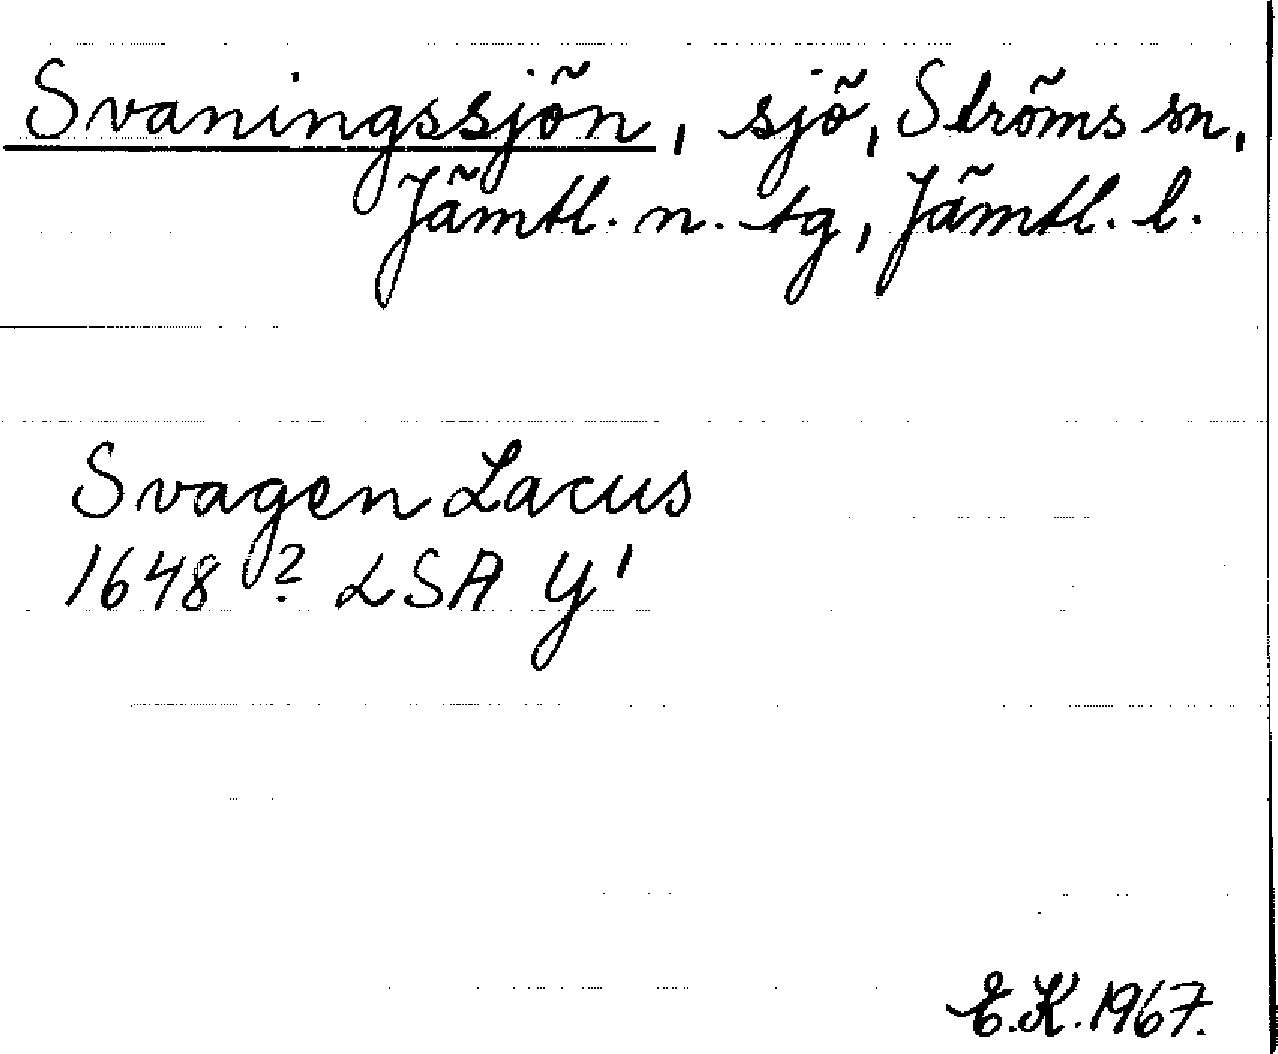 Svaningssjön, sjö, Ströms sn,
Jämtl. n. tg, Jämtl. l.
Svagen Lacus
1648? LSA Y1
E.K. 1967.